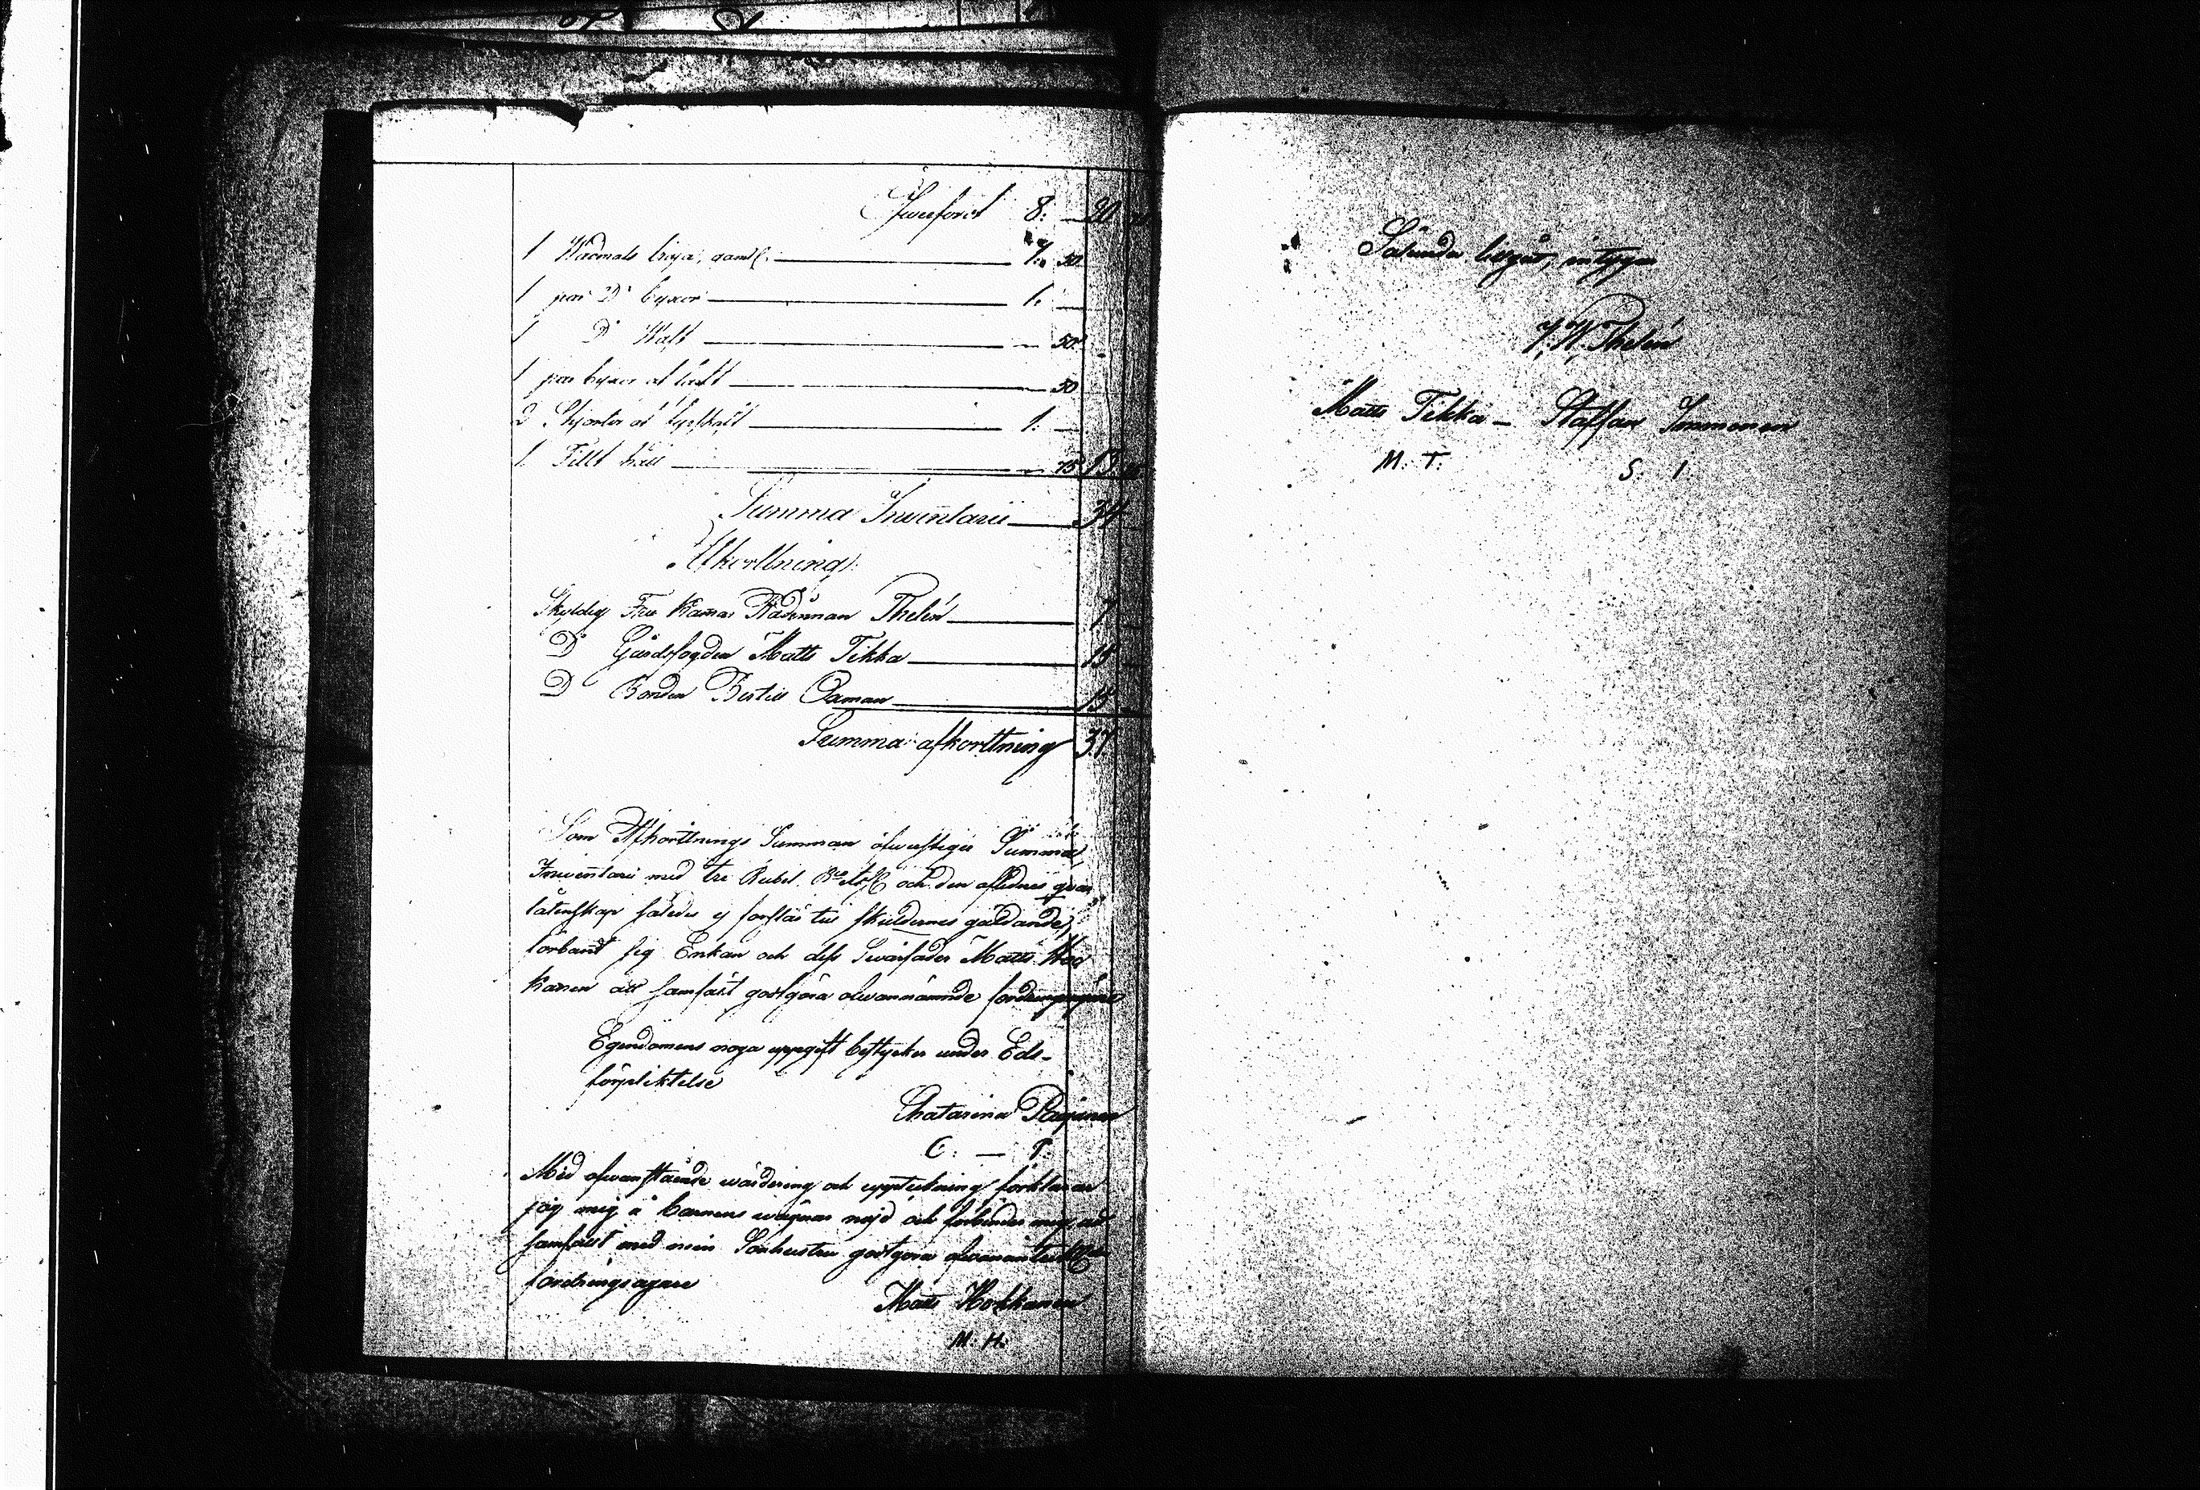 Öfwerfördt 8: — 20
1 Wadmals tröja, gaml: 7: 50
1 par D:o byxor 1: —
1 D:o Wäst — 50
1 par byxor af lärft — 50
2 Skjortor af 1: —
1 Fillt hatt — 75 13
Summa Inventarii 34
Afkorttning:
Skyldig Fru Rådman Thelén 7 —
D:o Gårdsfogden Matts Tikka 15 —
D:o Bonden Bertill Oxman 15 —
Summa afkorttning 37
Som Afkorttnings Summan öfwerstiger Summa
Inventarii med tre Rubel och den aflednes qvar
låtenskap således ej förslår till skuldernes gäldande,
förband sig Enkan och dess Swärfader Matts Hok
kanen att samfält godtgöra ofwannämnde fordringsägare
Egendomens noga uppgift bestyrker under Eds-
förpliktelse
Chatarina
C: — P:
Med ofwanstående wärdering och uppteckning förklarar
jag mig å barnens wägnar nöjd och förbinder mig att
samfält med min Sonhustru godtgöra
fordringsägare
Matts Hokkanen
M: H:
Sålunda wara, intyga
J. W. Thelén
Matts Tikka — Staffan Immonen
M: T: S: I: